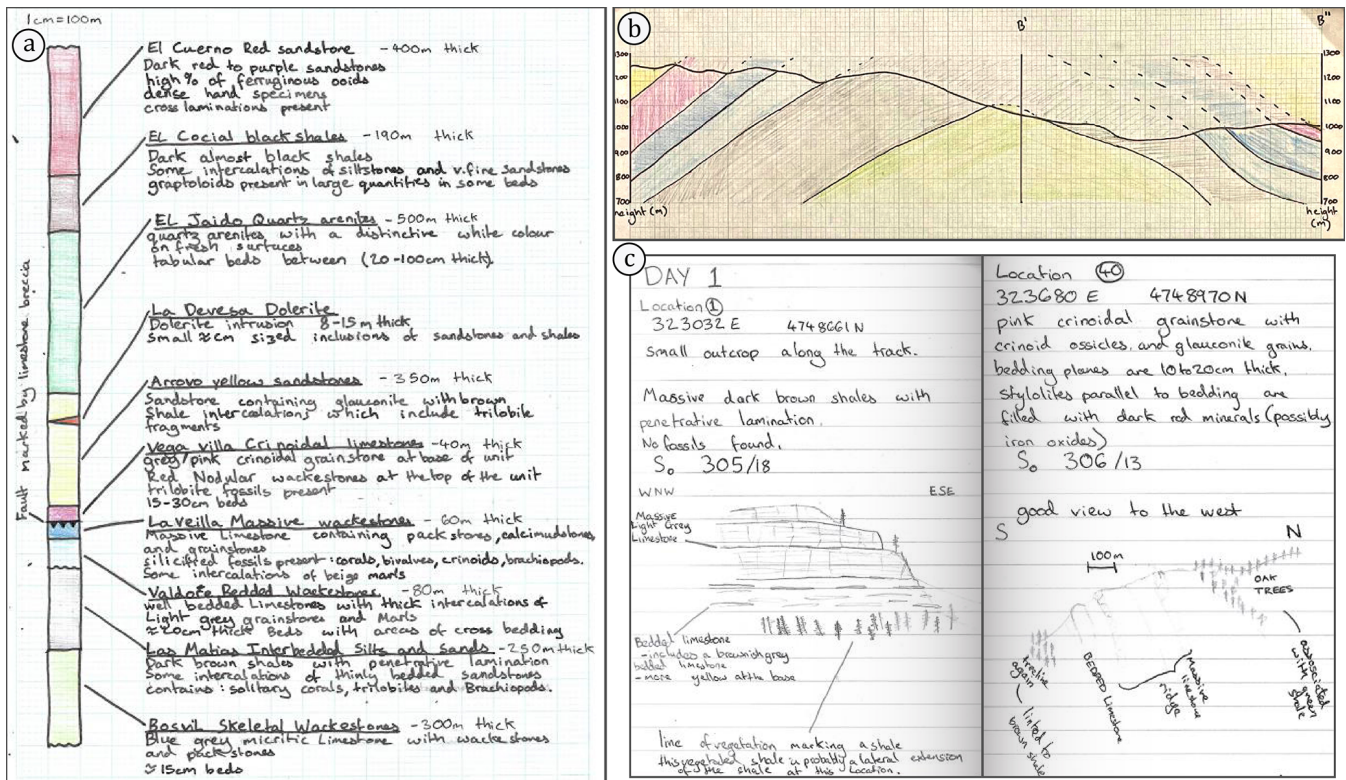 1cm=100m
a
El Cuerno Red sandstone - 400m thick
Dark red to purple sandstones
high % of ferruginous ooids
dense hand specimens
cross laminations present
EL Cocial black shales - 190m thick
Dark almost black shales
Some intercalations of siltstones and v.fine sandstones
graptoloids present in large quantities in some beds
EL Jaido Quartz arenites - 500m thick
quartz arenites with a distinctive white colour
on fresh surfaces
tabular beds between (20-100cm thick).
La Devesa Dolerite
Dolerite intrusion 8-15m thick
small ≈cm sized inclusions of sandstones and shales
Arroyo yellow sandstones - 350m thick
Sandstone containing glauconite with brown
Shale intercalations which include trilobite
fragments
Vega villa Crinoidal limestones - 40m thick
grey/pink crinoidal grainstone at base of unit
Red Nodular wackestones at the top of the unit
trilobite fossils present
15-30cm beds
La veilla Massive wackestones - 60m thick
Massive Limestone containing packstones, calcimudstones,
and grainstones
silicified fossils present: corals, bivalves, crinoids, brachiopods.
Some intercalations of beige marls
Valdoré Bedded Wackestones - 80m thick
well bedded Limestones with thick intercalations of
Light grey grainstones and Marls
≈20cm thick Beds with areas of cross bedding
Las Matias Interbedded Silts and Sands - 250m thick
Dark brown shales with penetrative lamination
Some intercalations of thinly bedded sandstones
contains: solitary corals, trilobites and Brachiopods.
Bosvil Skeletal Wackestones - 300m thick
Blue grey micritic Limestone with wackestones
and packstones
≈15cm beds
Fault marked by limestone breccia
b
B'
B"
1300
1200
1100
1000
900
800
700
height (m)
1300
1200
1100
1000
900
800
700
height
(m)
c
DAY 1
Location 1
323032 E 4748661 N
small outcrop along the track.
Massive dark brown shales with
penetrative lamination.
No fossils found.
S₀ 305/18
WNW ESE
Massive
Light Grey
Limestone
Bedded limestone
- includes a brownish grey
bedded limestone
- more yellow at the base
line of vegetation marking a shale
this vegetated shale is probably a lateral extension
of the shale at this location.
Location 40
323680 E 4748970 N
pink crinoidal grainstone with
crinoid ossicles, and glauconite grains.
bedding planes are 10 to 20cm thick.
stylolites parallel to bedding are
filled with dark red minerals (possibly
iron oxides)
S₀ 306/13
good view to the west
S N
100m
OAK
TREES
associated
with green
shale
Massive
limestone
ridge
BEDDED Limestone
treeline
again
linked to
brown shale